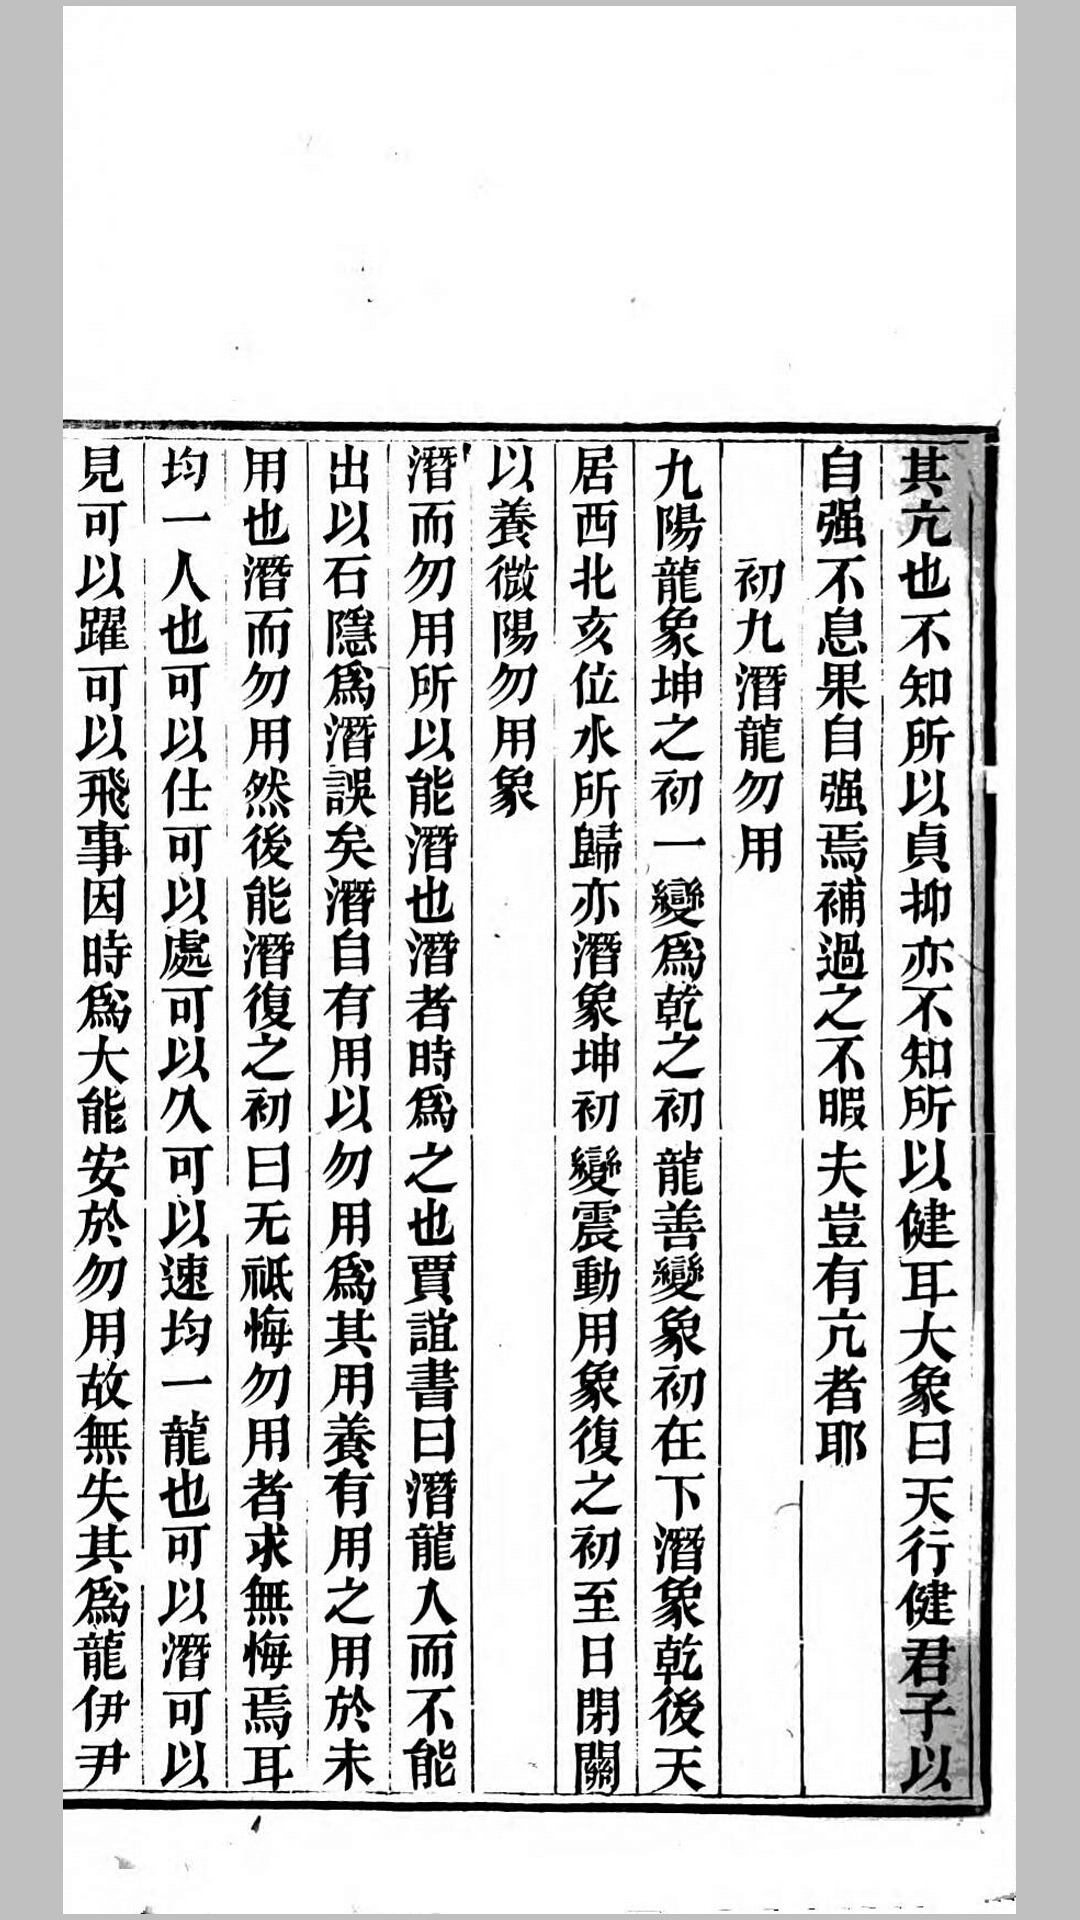 其亢也不知所以貞抑亦不知所以健耳大象曰天行健君子以
自强不息果自强焉補過之不暇夫豈有亢者耶
初九潛龍勿用
九陽龍象坤之初一變爲乾之初龍善變象初在下潛象乾後天
居西北亥位水所歸亦潛象坤初變震動用象復之初至日閉關
以養微陽勿用象
潛而勿用所以能潛也潛者時爲之也賈誼書曰潛龍入而不能
出以石隱爲潛誤矣潛自有用以勿用爲其用養有用之用於未
用也潛而勿用然後能潛復之初曰无祗悔勿用者求無悔焉耳
均一人也可以仕可以處可以久可以速均一龍也可以潛可以
見可以躍可以飛事因時爲大能安於勿用故無失其爲龍伊尹